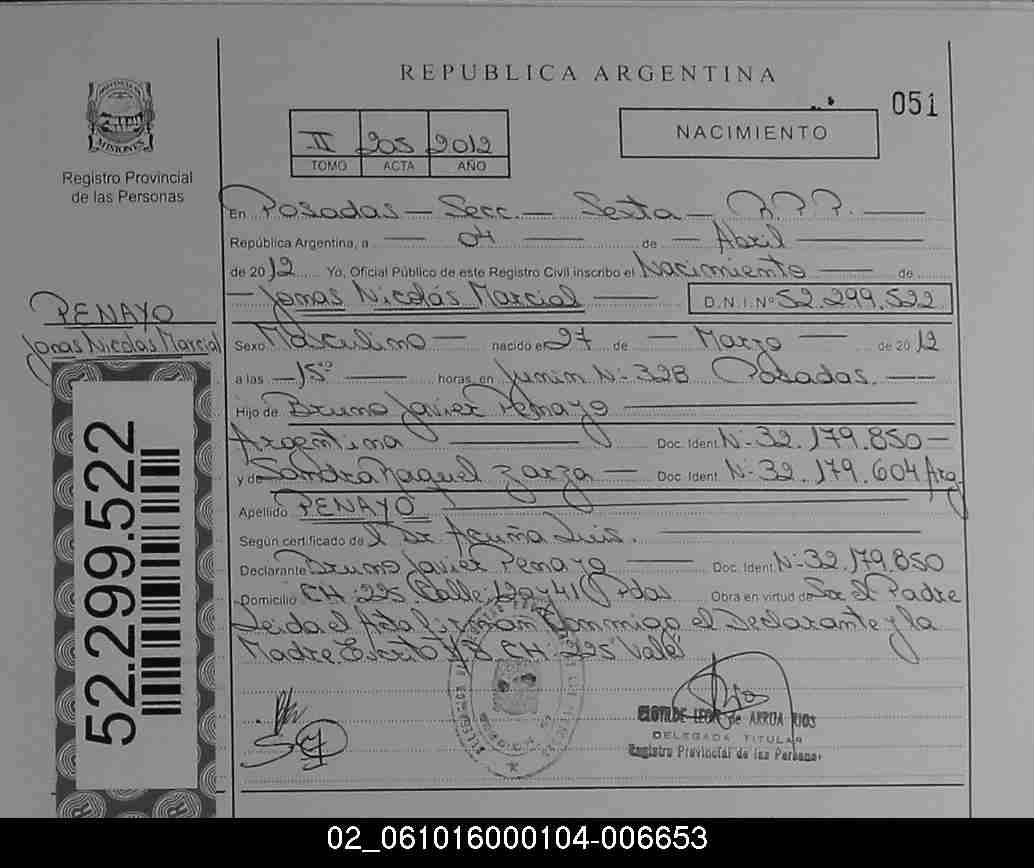 REPUBLICA ARGENTINA
051
PROVINCIA DE
MISIONES
Registro Provincial
de las Personas
II 205 2012
TOMO ACTA AÑO
NACIMIENTO
En Posadas — Secc. — Sexta — R.P.P.
República Argentina, a — 04 — de — Abril —
de 2012 Yo, Oficial Público de este Registro Civil inscribo el Nacimiento — de
— Jonas Nicolás Marcial — D.N.I. Nº 52.299.522
PENAYO
Jonas Nicolas Marcial
Sexo Masculino — nacido el 27 de — Marzo — de 2012
a las — 15⁰⁰ — horas, en Junin N- 328 Posadas. —
Hijo de Bruno Javier Penayo —
Argentina — Doc. Ident. N- 32.179.850 —
y de Sandra Raquel Zarza — Doc. Ident N- 32.179.604 Arg
Apellido PENAYO
Según certificado del Dr Acuña Luis.
Declarante Bruno Javier Penayo — Doc. Ident. N- 32.179.850
Domicilio CH: 225 Calle 120 y 41 Pdas Obra en virtud de Ser el Padre
Leida el Acta firman conmigo el Declarante y la
Madre Escrito CH: 225 Vale
52.299.522
CLOTILDE LEON de ARRUA RIOS
DELEGADA TITULAR
Registro Provincial de las Personas
02_061016000104-006653